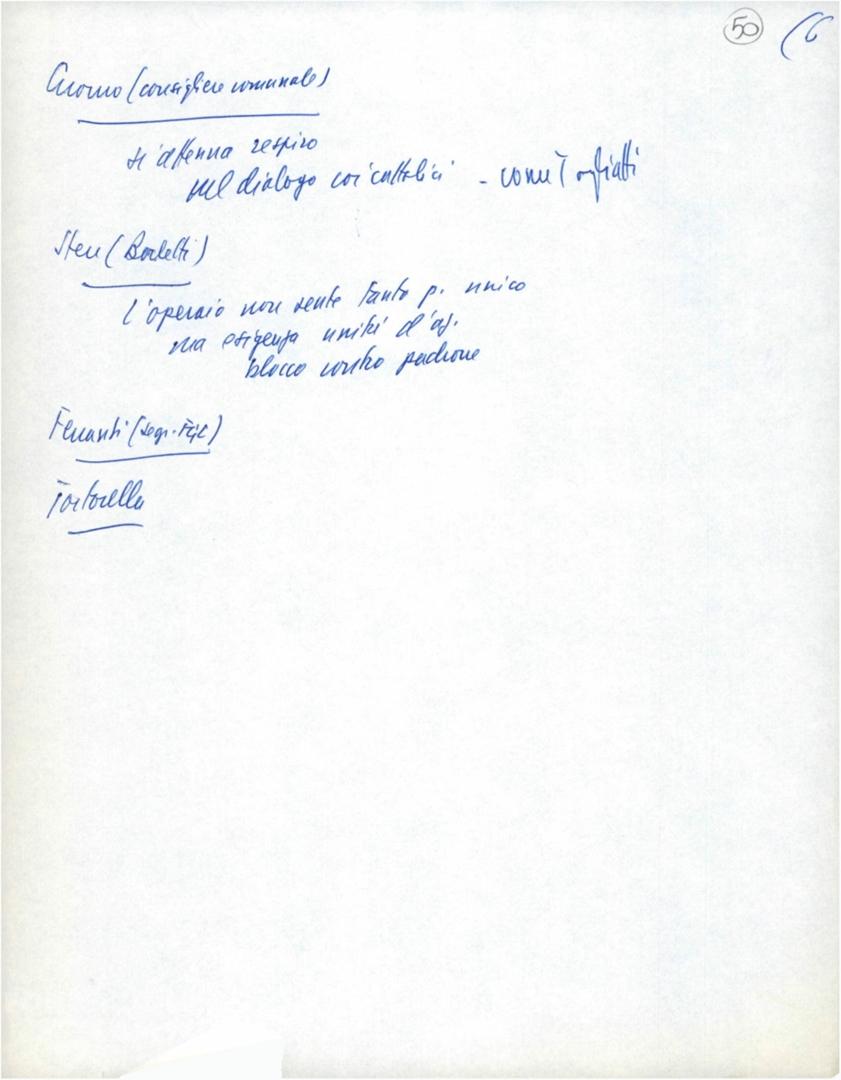 50 (6
Cuomo (consigliere comunale)
si attenua respiro
nel dialogo coi cattolici - come Togliatti
(Borletti)
l'operaio non sente tanto p. unico
ma esigenza unità d'az.
blocco contro padrone
Ferranti (segr. FGC)
Tortorella